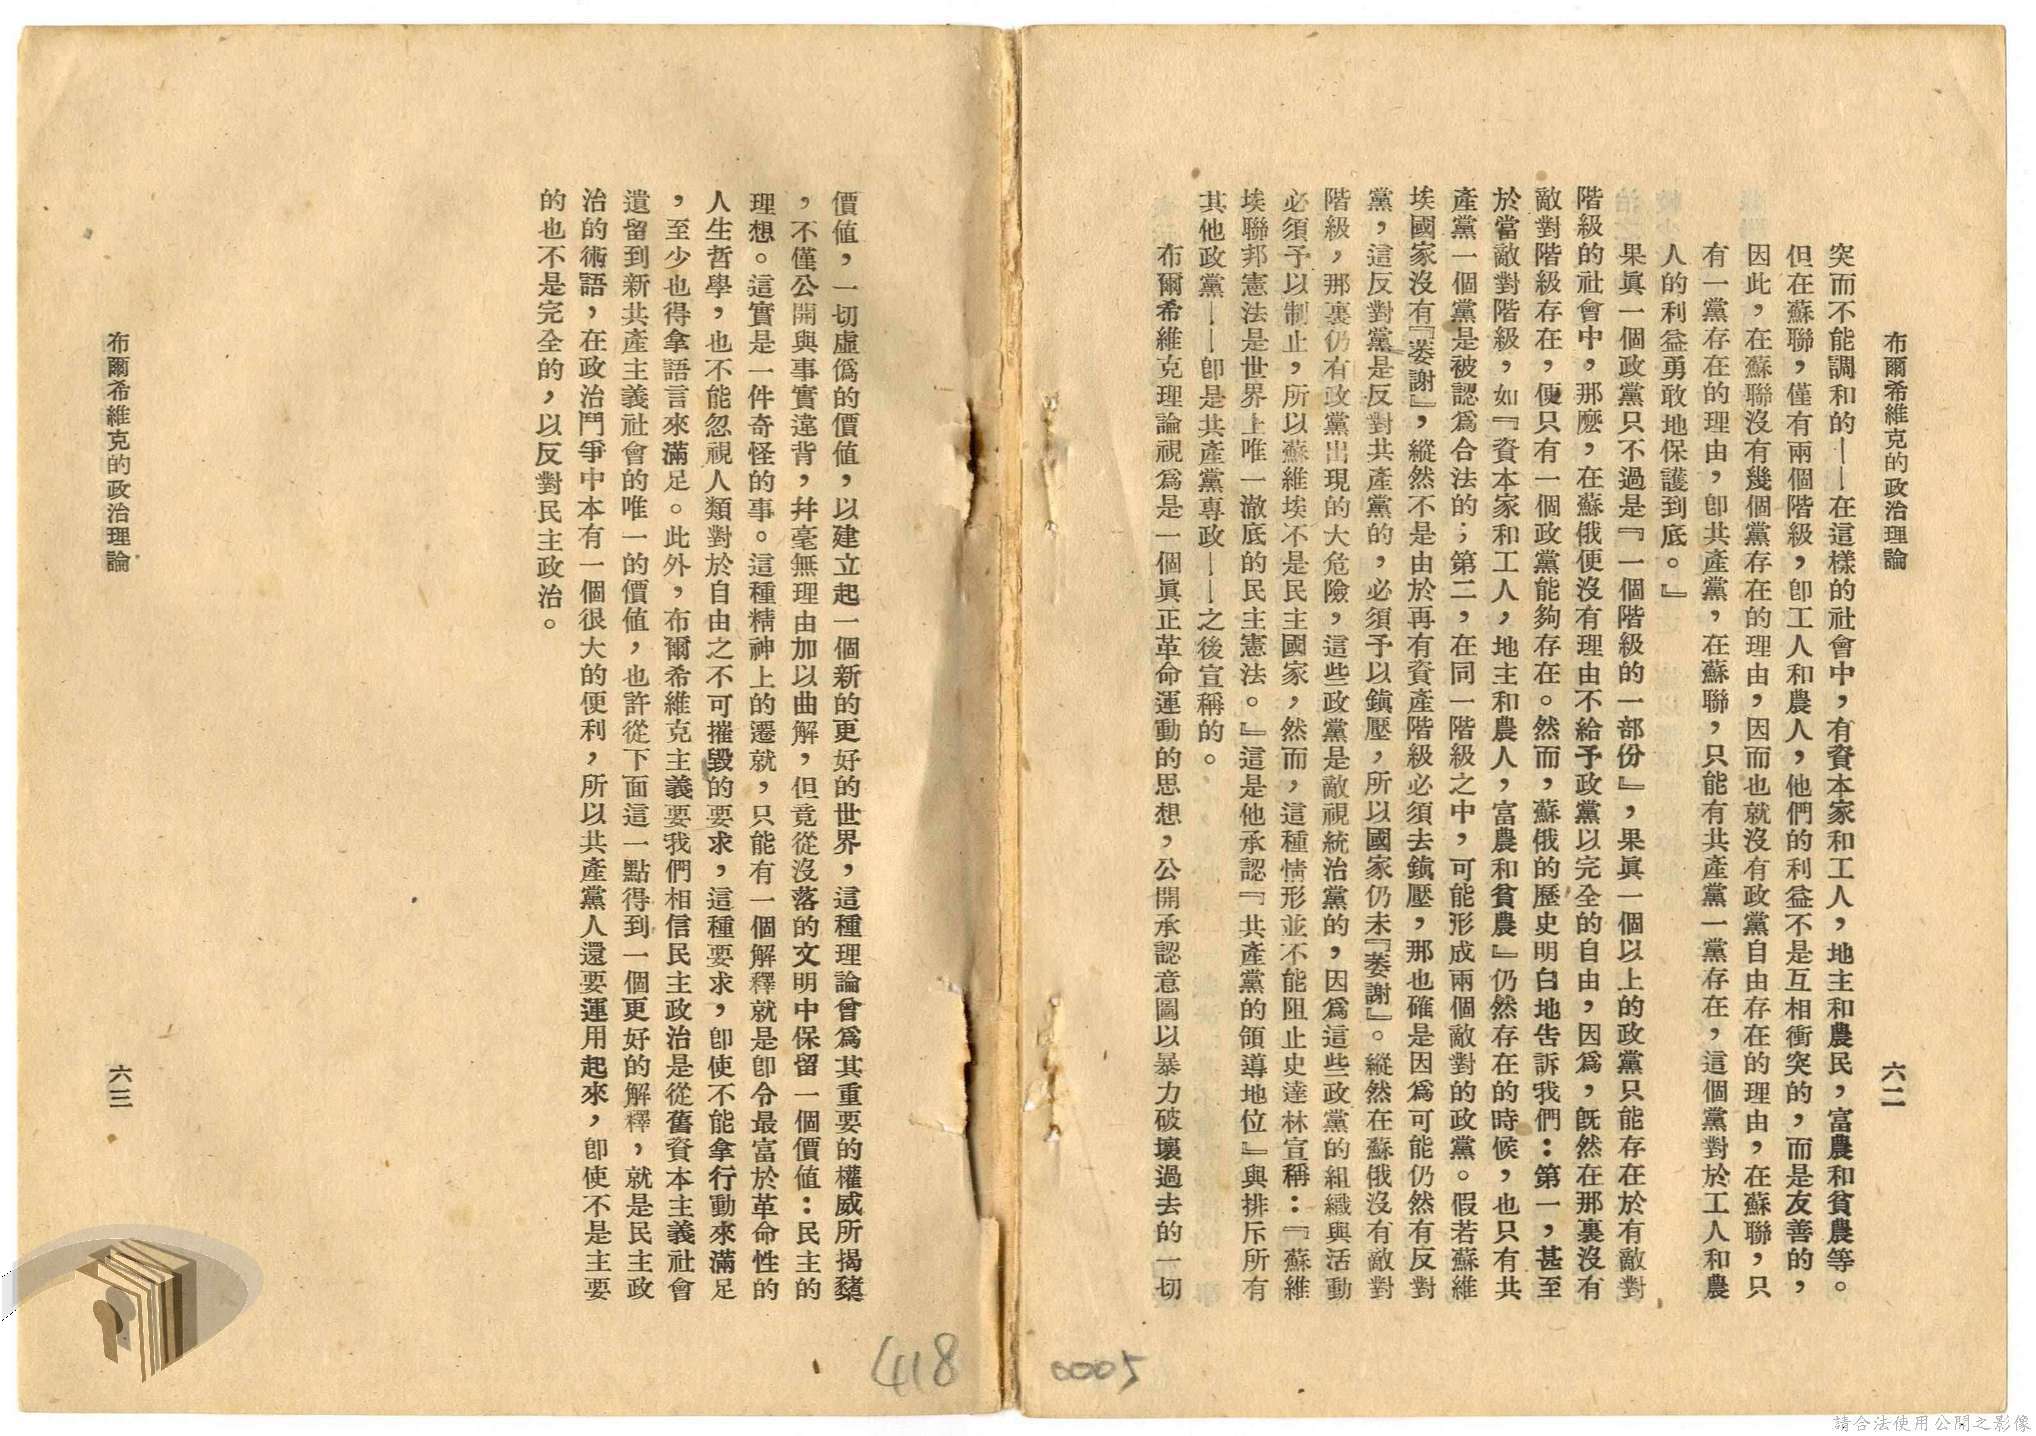 布爾希維克的政治理論
六二
突而不能調和的——在這樣的社會中，有資本家和工人，地主和農民，富農和貧農等。
但在蘇聯，僅有兩個階級，卽工人和農人，他們的利益不是互相衝突的，而是友善的，
因此，在蘇聯沒有幾個黨存在的理由，因而也就沒有政黨自由存在的理由，在蘇聯，只
有一黨存在的理由，卽共產黨，在蘇聯，只能有共產黨一黨存在，這個黨對於工人和農
人的利益勇敢地保護到底。』
果眞一個政黨只不過是『一個階級的一部份』，果眞一個以上的政黨只能存在於有敵對
階級的社會中，那麼，在蘇俄便沒有理由不給予政黨以完全的自由，因爲，旣然在那裏沒有
敵對階級存在，便只有一個政黨能夠存在。然而，蘇俄的歷史明白地告訴我們：第一，甚至
於當敵對階級，如『資本家和工人，地主和農人，富農和貧農』仍然存在的時候，也只有共
產黨一個黨是被認爲合法的；第二，在同一階級之中，可能形成兩個敵對的政黨。假若蘇維
埃國家沒有『萎謝』，縱然不是由於再有資產階級必須去鎭壓，那也確是因爲可能仍然有反對
黨，這反對黨是反對共產黨的，必須予以鎭壓，所以國家仍未『萎謝』。縱然在蘇俄沒有敵對
階級，那裏仍有政黨出現的大危險，這些政黨是敵視統治黨的，因爲這些政黨的組織與活動
必須予以制止，所以蘇維埃不是民主國家，然而，這種情形並不能阻止史達林宣稱：『蘇維
埃聯邦憲法是世界上唯一澈底的民主憲法。』這是他承認『共產黨的領導地位』與排斥所有
其他政黨——卽是共產黨專政——之後宣稱的。
布爾希維克理論視爲是一個眞正革命運動的思想，公開承認意圖以暴力破壞過去的一切
價值，一切虛僞的價值，以建立起一個新的更好的世界，這種理論曾爲其重要的權威所揭櫫
，不僅公開與事實違背，幷毫無理由加以曲解，但竟從沒落的文明中保留一個價值：民主的
理想。這實是一件奇怪的事。這種精神上的遷就，只能有一個解釋就是卽令最富於革命性的
人生哲學，也不能忽視人類對於自由之不可摧毀的要求，這種要求，卽使不能拿行動來滿足
，至少也得拿語言來滿足。此外，布爾希維克主義要我們相信民主政治是從舊資本主義社會
遺留到新共產主義社會的唯一的價值，也許從下面這一點得到一個更好的解釋，就是民主政
治的術語，在政治鬥爭中本有一個很大的便利，所以共產黨人還要運用起來，卽使不是主要
的也不是完全的，以反對民主政治。
布爾希維克的政治理論
六三
418
0005
請合法使用公開之影像